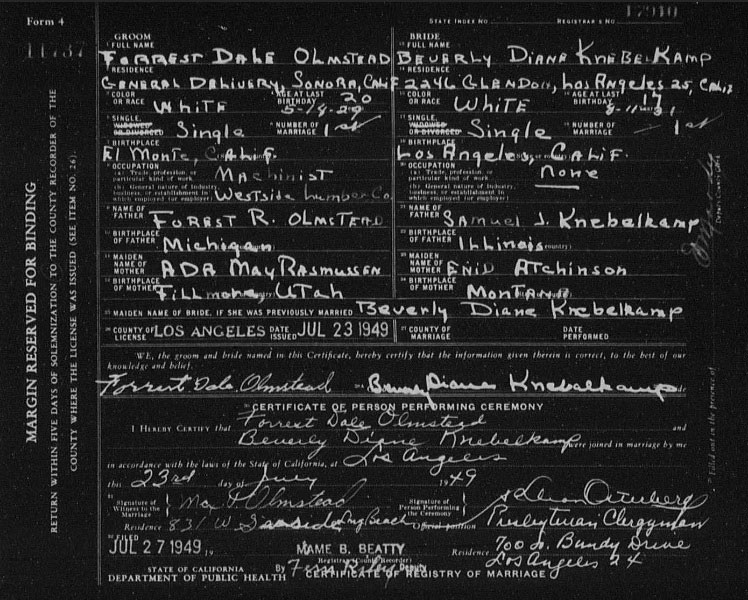 Form 4
STATE INDEX NO.
REGISTRAR'S NO.
17910
11737
GROOM
BRIDE
FULL NAME FORREST DALE OLMSTEAD
FULL NAME BEVERLY DIANE KNEBELKAMP
RESIDENCE GENERAL DELIVERY, SONORA, CALIF
RESIDENCE 2246 GLENDON, LOS ANGELES 25, CALIF
COLOR OR RACE WHITE AGE AT LAST BIRTHDAY 20 5-14-29
COLOR OR RACE WHITE AGE AT LAST BIRTHDAY 17 -11-31
SINGLE, WIDOWED OR DIVORCED Single NUMBER OF MARRIAGE 1st
SINGLE, WIDOWED OR DIVORCED Single NUMBER OF MARRIAGE 1st
BIRTHPLACE El Monte, CALIF.
BIRTHPLACE Los Angeles, CALIF.
OCCUPATION
(a) Trade, profession, or particular kind of work Machinist
(b) General nature of industry, business, or establishment in which employed (or employer) Westside Lumber Co
OCCUPATION
(a) Trade, profession, or particular kind of work none
(b) General nature of industry, business, or establishment in which employed (or employer)
NAME OF FATHER FORREST R. OLMSTEAD
NAME OF FATHER Samuel J. Knebelkamp
BIRTHPLACE OF FATHER Michigan
BIRTHPLACE OF FATHER Illinois
MAIDEN NAME OF MOTHER ADA MAY RASMUSSEN
MAIDEN NAME OF MOTHER ENID ATCHINSON
BIRTHPLACE OF MOTHER Fillmore, UTAH
BIRTHPLACE OF MOTHER MONTANA
MAIDEN NAME OF BRIDE, IF SHE WAS PREVIOUSLY MARRIED Beverly Diane Knebelkamp
COUNTY OF LICENSE LOS ANGELES DATE ISSUED JUL 23 1949
COUNTY OF MARRIAGE DATE PERFORMED
WE, the groom and bride named in this Certificate, hereby certify that the information given therein is correct, to the best of our
knowledge and belief.
Forrest Dale Olmstead
Beverly Diane Knebelkamp
CERTIFICATE OF PERSON PERFORMING CEREMONY
I HEREBY CERTIFY THAT Forrest Dale Olmstead and
Beverly Diane Knebelkamp were joined in marriage by me
in accordance with the laws of the State of California, at Los Angeles
this 23rd day of July 1949
Signature of Witness to the Marriage Max Olmstead
Residence 831 W Seaside Long Beach
Signature of Person Performing the Ceremony
Official position Presbyterian Clergyman
Residence 700 So. Bundy Drive
Los Angeles 24
FILED JUL 27 1949, 19
MAME B. BEATTY
Registrar (County Recorder)
By Deputy
STATE OF CALIFORNIA
DEPARTMENT OF PUBLIC HEALTH
CERTIFICATE OF REGISTRY OF MARRIAGE
MARGIN RESERVED FOR BINDING
RETURN WITHIN FIVE DAYS OF SOLEMNIZATION TO THE COUNTY RECORDER OF THE
COUNTY WHERE THE LICENSE WAS ISSUED (SEE ITEM NO. 26)
Filled out in the presence of